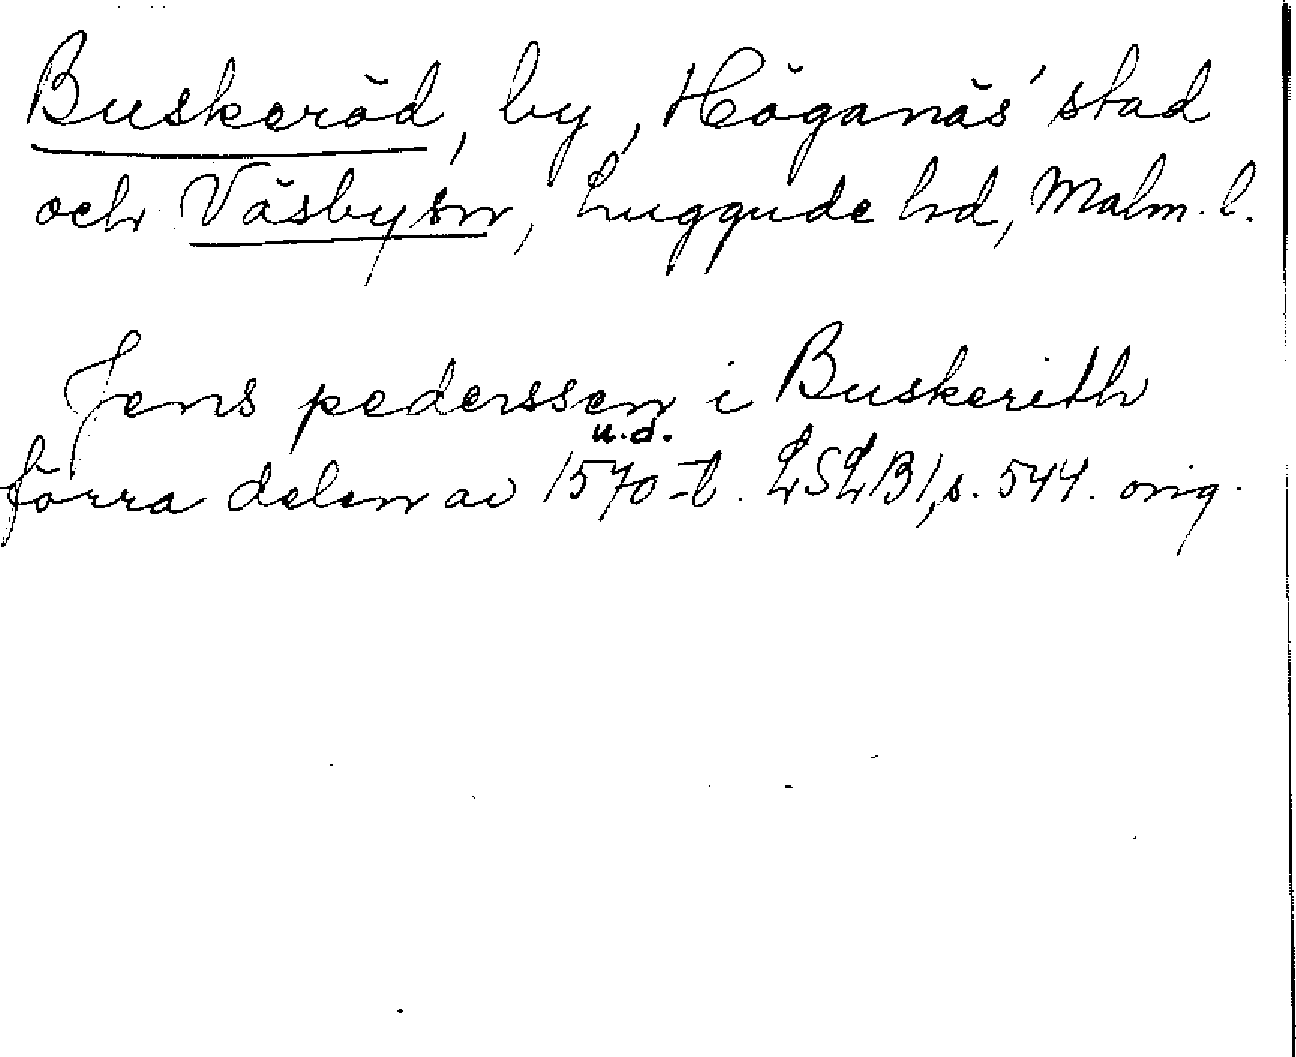 Buskeröd, by, Höganäs' stad
och Väsby sn, Luggude hd, Malm. l.
Jens pederssen i Buskerith
u.d.
förra delen av 1570-t. LSLB 1, s. 544. orig.